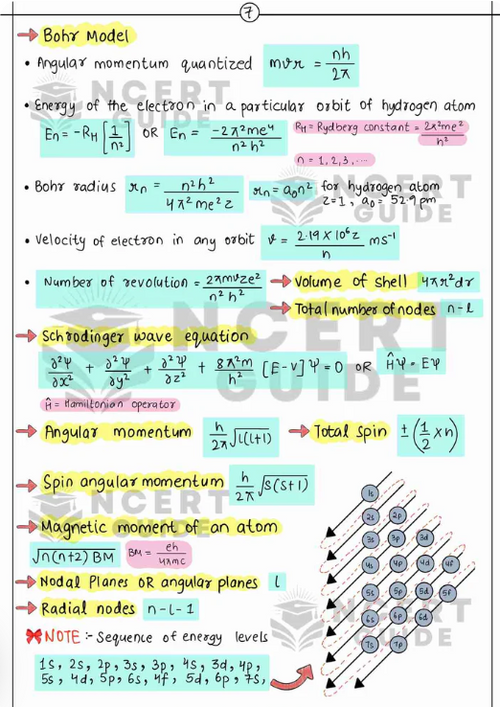 7
→ Bohr Model
• Angular momentum quantized mvr = nh/2π
• Energy of the electron in a particular orbit of hydrogen atom
En = -RH [1/n²] OR En = -2π²me⁴/n²h² RH = Rydberg constant = 2π²me²/h²
n = 1, 2, 3, ...
• Bohr radius rn = n²h²/4π²me²z rn = a₀n² for hydrogen atom
z=1, a₀ = 52.9 pm
• Velocity of electron in any orbit v = 2.19 × 10⁶z/n ms⁻¹
• Number of revolution = 2πmvze²/n²h² → Volume of shell 4πr²dr
→ Total number of nodes n-l
→ Schrodinger wave equation
∂²Ψ/∂x² + ∂²Ψ/∂y² + ∂²Ψ/∂z² + 8π²m/h² [E-V]Ψ = 0 OR ĤΨ = EΨ
Ĥ = Hamiltonian operator
→ Angular momentum h/2π √l(l+1) → Total spin ± (1/2 × n)
→ Spin angular momentum h/2π √s(s+1)
→ Magnetic moment of an atom
√n(n+2) BM BM = eh/4πmc
→ Nodal Planes OR angular planes l
→ Radial nodes n-l-1
NOTE :- Sequence of energy levels
1s, 2s, 2p, 3s, 3p, 4s, 3d, 4p,
5s, 4d, 5p, 6s, 4f, 5d, 6p, 7s,
1s
2s 2p
3s 3p 3d
4s 4p 4d 4f
5s 5p 5d 5f
6s 6p 6d
7s 7p
NCERT
GUIDE
NCERT
GUIDE
NCERT
GUIDE
NCERT
GUIDE
NCERT
GUIDE